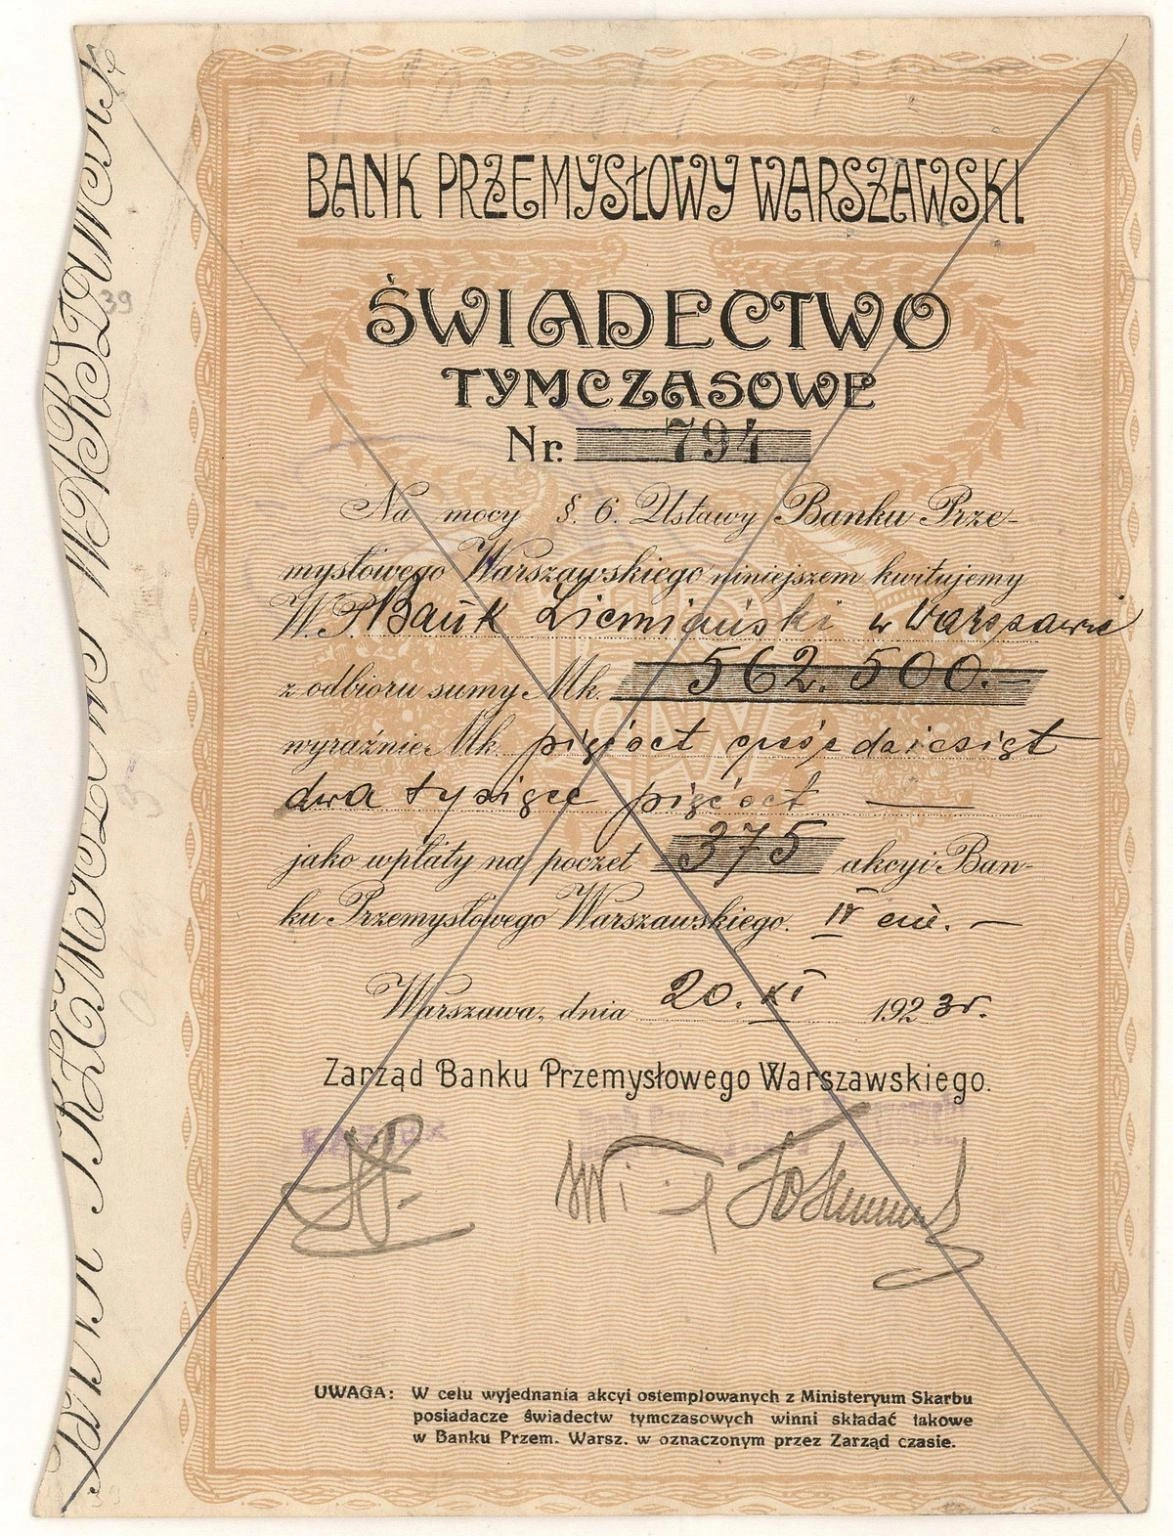 BANK PRZEMYSŁOWY WARSZAWSKI
ŚWIADECTWO
TYMCZASOWE
Nr. 794
Na mocy §. 6. Ustawy Banku Prze-
mysłowego Warszawskiego niniejszem kwitujemy
W. P. Bank Ziemiański w Warszawie
z odbioru sumy Mk. 562.500.—
wyraźnie Mk. pięćset sześćdziesiąt
dwa tysiące pięćset —
jako wpłaty na poczet 375 akcyi Ban-
ku Przemysłowego Warszawskiego. IV em. —
Warszawa, dnia 20. XI 1923r.
Zarząd Banku Przemysłowego Warszawskiego.
UWAGA: W celu wyjednania akcyi ostemplowanych z Ministeryum Skarbu
posiadacze świadectw tymczasowych winni składać takowe
w Banku Przem. Warsz. w oznaczonym przez Zarząd czasie.
BANK PRZEMYSŁOWY WARSZAWSKI
39